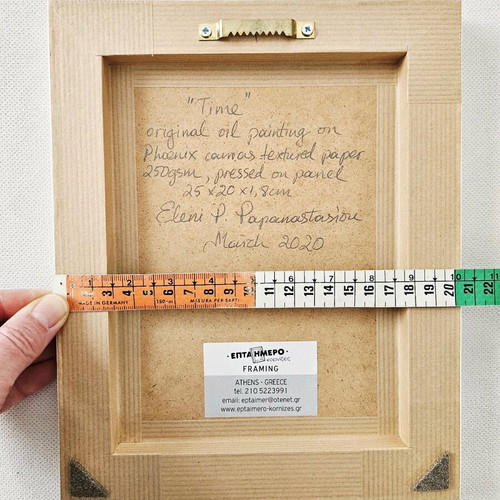 "Time"
original oil painting on
Phoenix canvas textured paper
250gsm, pressed on panel
25 x 20 x 1,8cm
Eleni P. Papanastasiou
March 2020
1 2 3 4 5 6 7 8 9 10 11 12 13 14 15 16 17 18 19 20 21 22
MADE IN GERMANY 150-cm MISURA PER SARTI
ΕΠΤΑΗΜΕΡΟ
κορνίζες
FRAMING
ATHENS - GREECE
tel. 210 5223991
email: eptaimer@otenet.gr
www.eptaimero-kornizes.gr